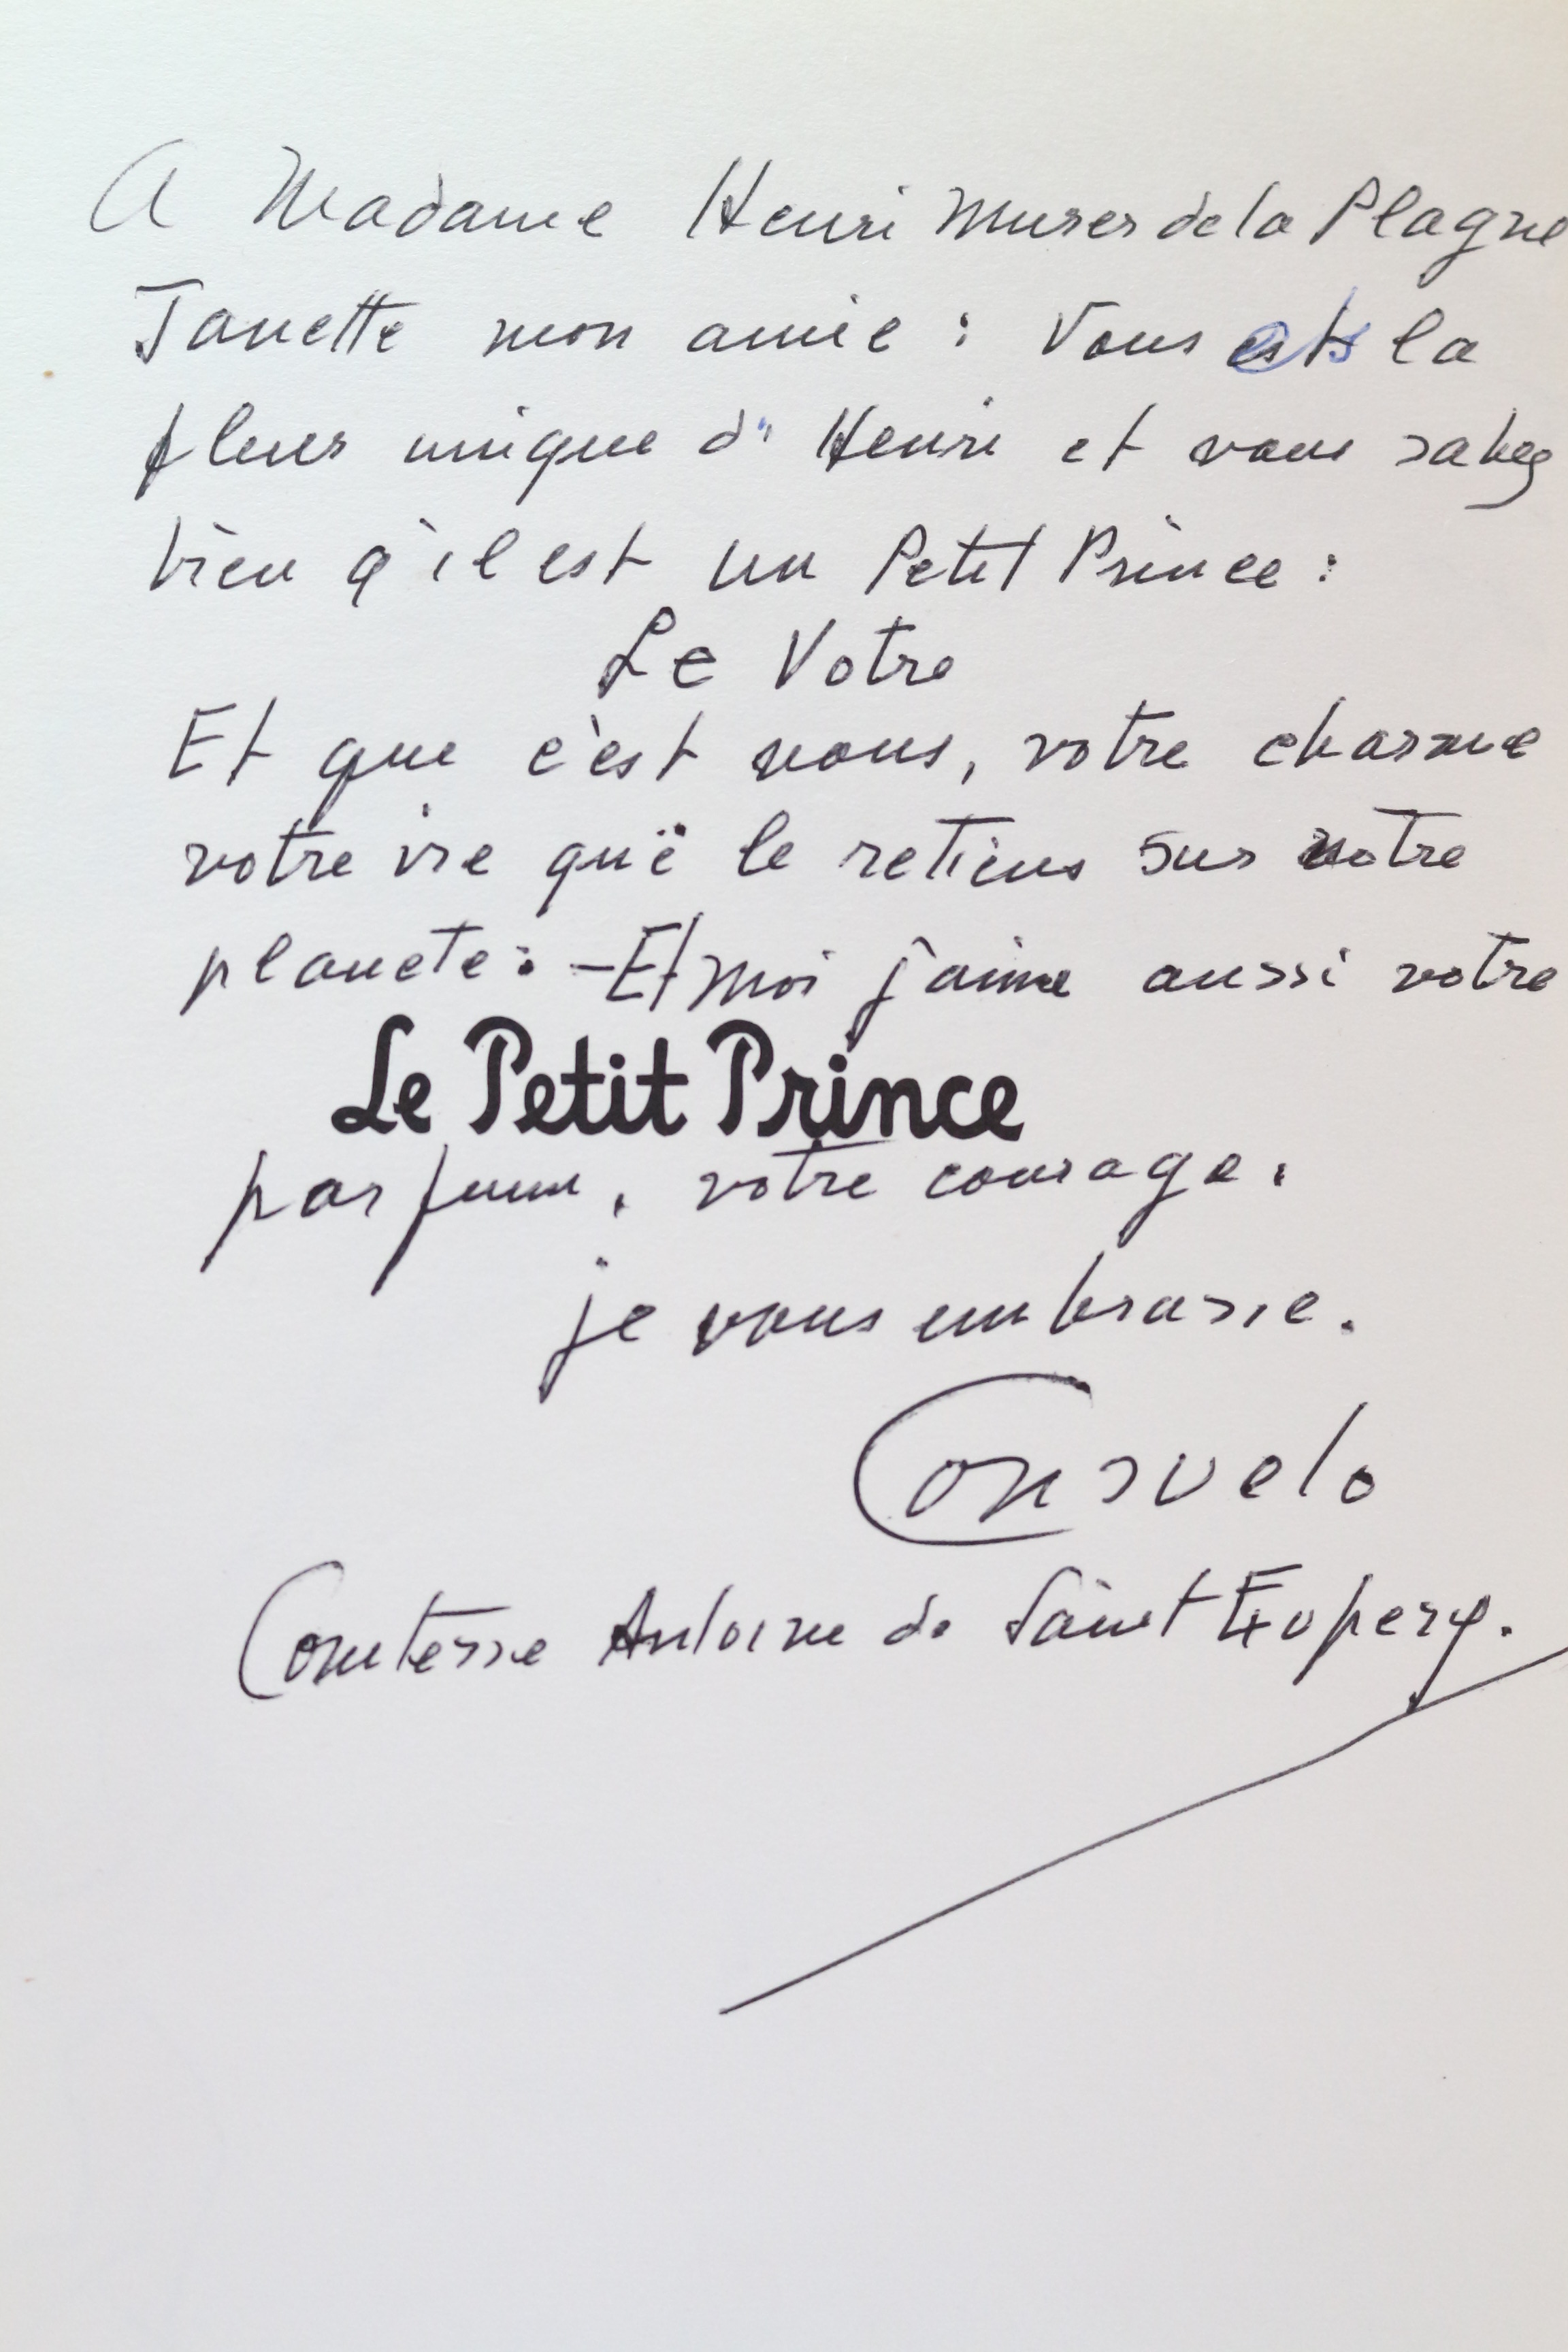 A Madame Henri Murer de la Plagne
Janette mon amie : Vous ets la
fleur unique d' Henri et vous savez
bien q'il est un Petit Prince :
Le Votre
Et que c'est vous, votre charme
votre vie què le retiens sur notre
planete : - Et moi j'aime aussi votre
Le Petit Prince
parfum, votre courage.
je vous embrasse.
Consuelo
Comtesse Antoine de Saint Exupery.